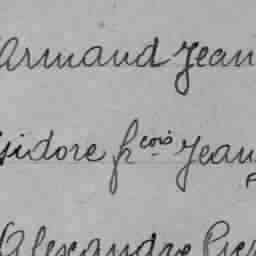 Armand Jean
Isidore fcois Jean
Alexandre Pier